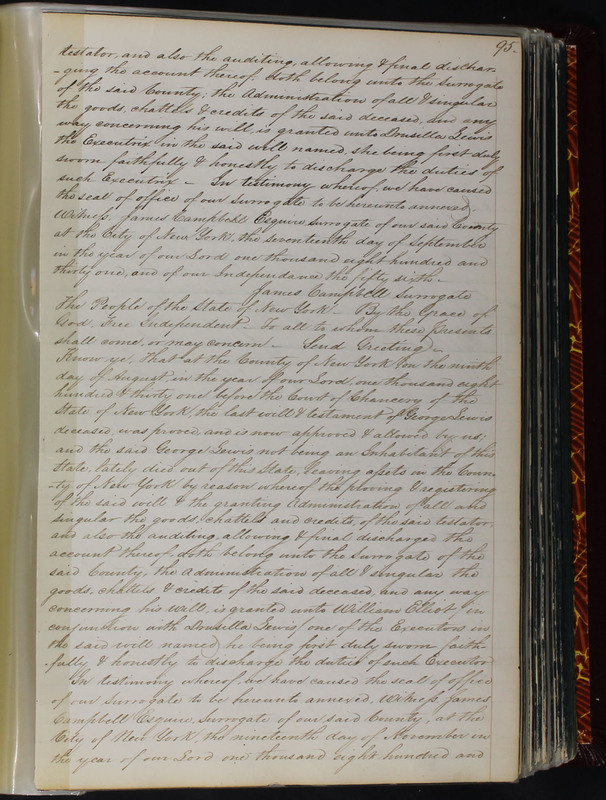 95.
testator, and also the auditing, allowing & final dischar-
-ging the account thereof: doth belong unto the surrogate
of the said County; the Administration of all & singular
the goods, chattels & credits of the said deceased, and any
way concerning his will, is granted unto Drusilla Lewis
the Executrix in the said will named, she being first duly
sworn faithfully & honestly to discharge the duties of
such Executrix — In testimony whereof, we have caused
the seal of office of our surrogate to be hereunto annexed.
Witness, James Campbell Esquire surrogate of our said County
at the City of New York, the seventeenth day of September
in the year of our Lord one thousand eight hundred and
thirty one, and of our Independance the fifty sixth —
James Campbell Surrogate
The People of the State of New York — By the Grace of
God, Free Independent — To all to whom these presents
shall come, or may concern — Send Greeting —
Know ye, That at the County of New York on the ninth
day of August, in the year of our Lord, one thousand eight
hundred & thirty one before the Court of Chancery of the
State of New York, the last will & testament of George Lewis
deceased, was proved, and is now approved & allowed by us;
and the said George Lewis not being an Inhabitant of this
State, lately died out of this State, leaving assets in the Coun-
-ty of New York by reason whereof the proving & registering
of the said will & the granting Administration, of all and
singular the goods, chattels and credits, of the said testator,
and also the auditing, allowing & final discharged the
account thereof, doth belong unto the Surrogate of the
said County; the Administration of all & singular the
goods, chattels & credits of the said deceased, and any way
concerning his Will, is granted unto William Elliot, in
conjunction with Drusilla Lewis (one of the Executors in
the said will named) he being first duly sworn faith-
-fully & honestly to discharge the duties of such Executor
In testimony whereof we have caused the seal of office
of our Surrogate to be hereunto annexed, Witness, James
Campbell Esquire, Surrogate of our said County, at the
City of New York, the nineteenth day of November in
the year of our Lord one thousand eight hundred and